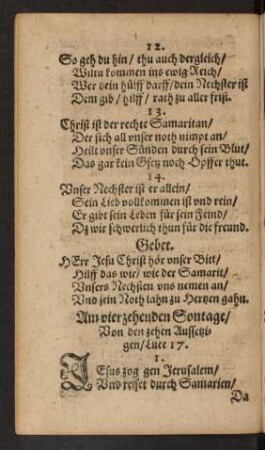 12.
So geh du hin/ thu auch dergleich/
Wiltu kommen ins ewig Reich/
Wer dein hülff darff/ dein Nechster ist
Dem gib/ hilff/ rath zu aller frist.
13.
Christ ist der rechte Samaritan/
Der sich all vnser noth nimpt an/
Heilt vnser Sünden durch sein Blut/
Das gar kein Gsetz noch Opffer thut.
14.
Vnser Nechster ist er allein/
Sein Lieb vollkommen ist vnd rein/
Er gibt sein Leben für sein Feind/
Dz wir schwerlich thun für die freund.
Gebet.
HErr Jesu Christ hör vnser Bitt/
Hilff das wir/ wie der Samarit/
Vnsers Nechsten vns nemen an/
Vnd sein Noth lahn zu Hertzen gahn.
Am vierzehenden Sontage/
Von den zehen Aussetzi-
gen/ Luce 17.
1.
JEsus zog gen Jerusalem/
Vnd reiset durch Samarien/
Da